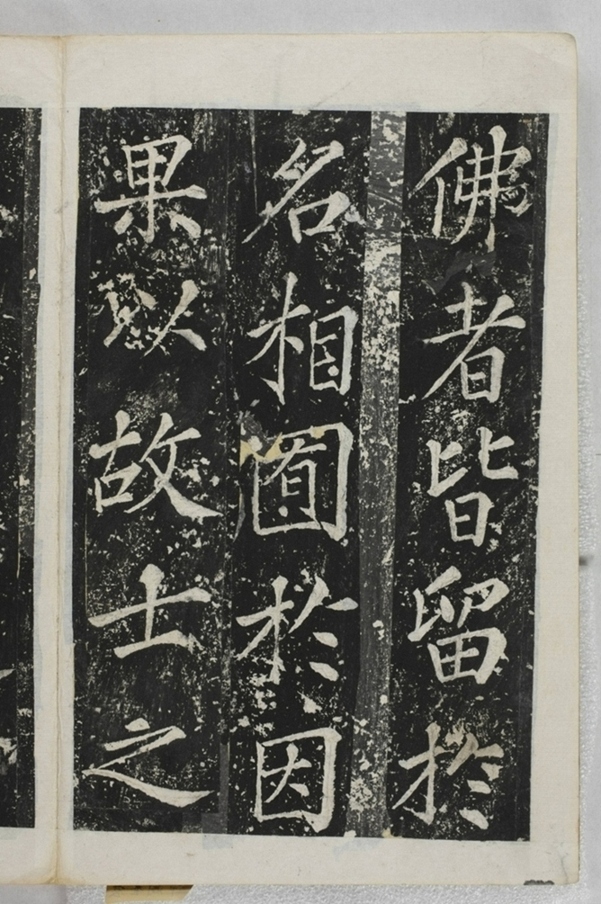 佛者皆留於
名相囿於因
果以故士之